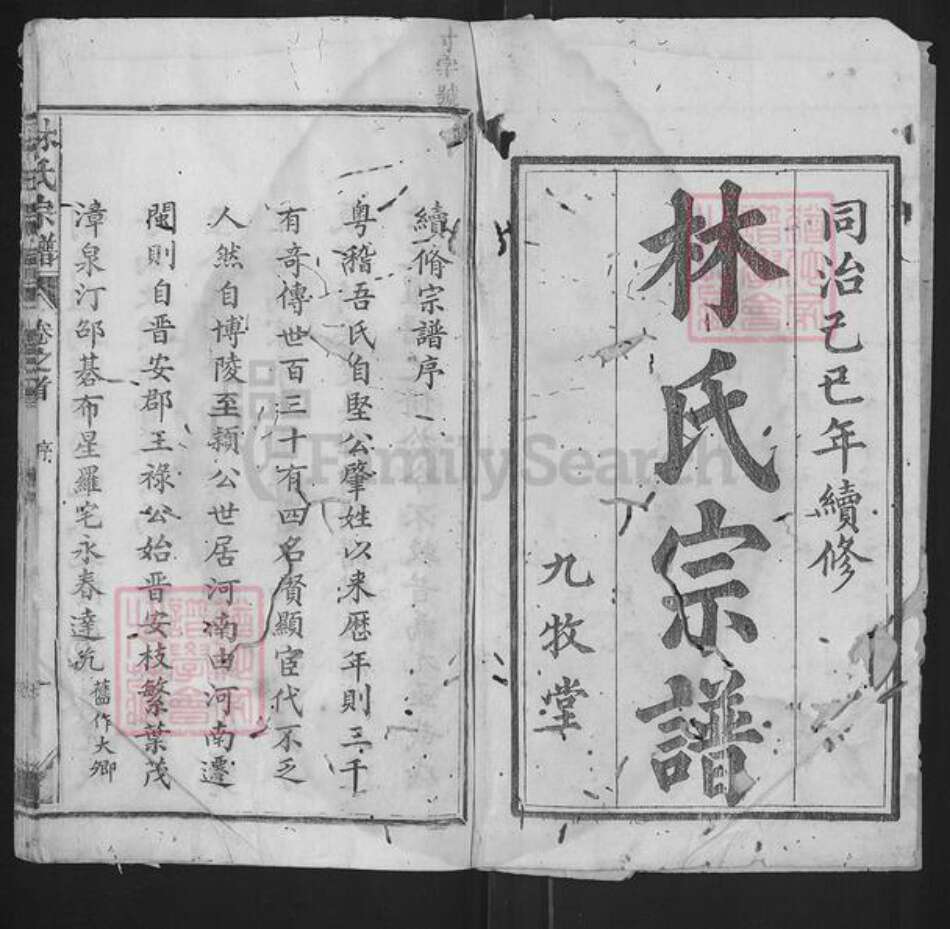 同治己巳年續修
林氏宗譜
九牧堂
續脩宗譜序
粵稽吾氏自堅公肇姓以来歷年則三千
有奇傳世百三十有四名賢顯宦代不乏
人然自博陵至頴公世居河南由河南遷
閩則自晋安郡王禄公始晋安枝繁葉茂
漳泉汀邵碁布星羅宅永春達九
舊作大卿
林氏宗譜
卷之首
序
FamilySearch